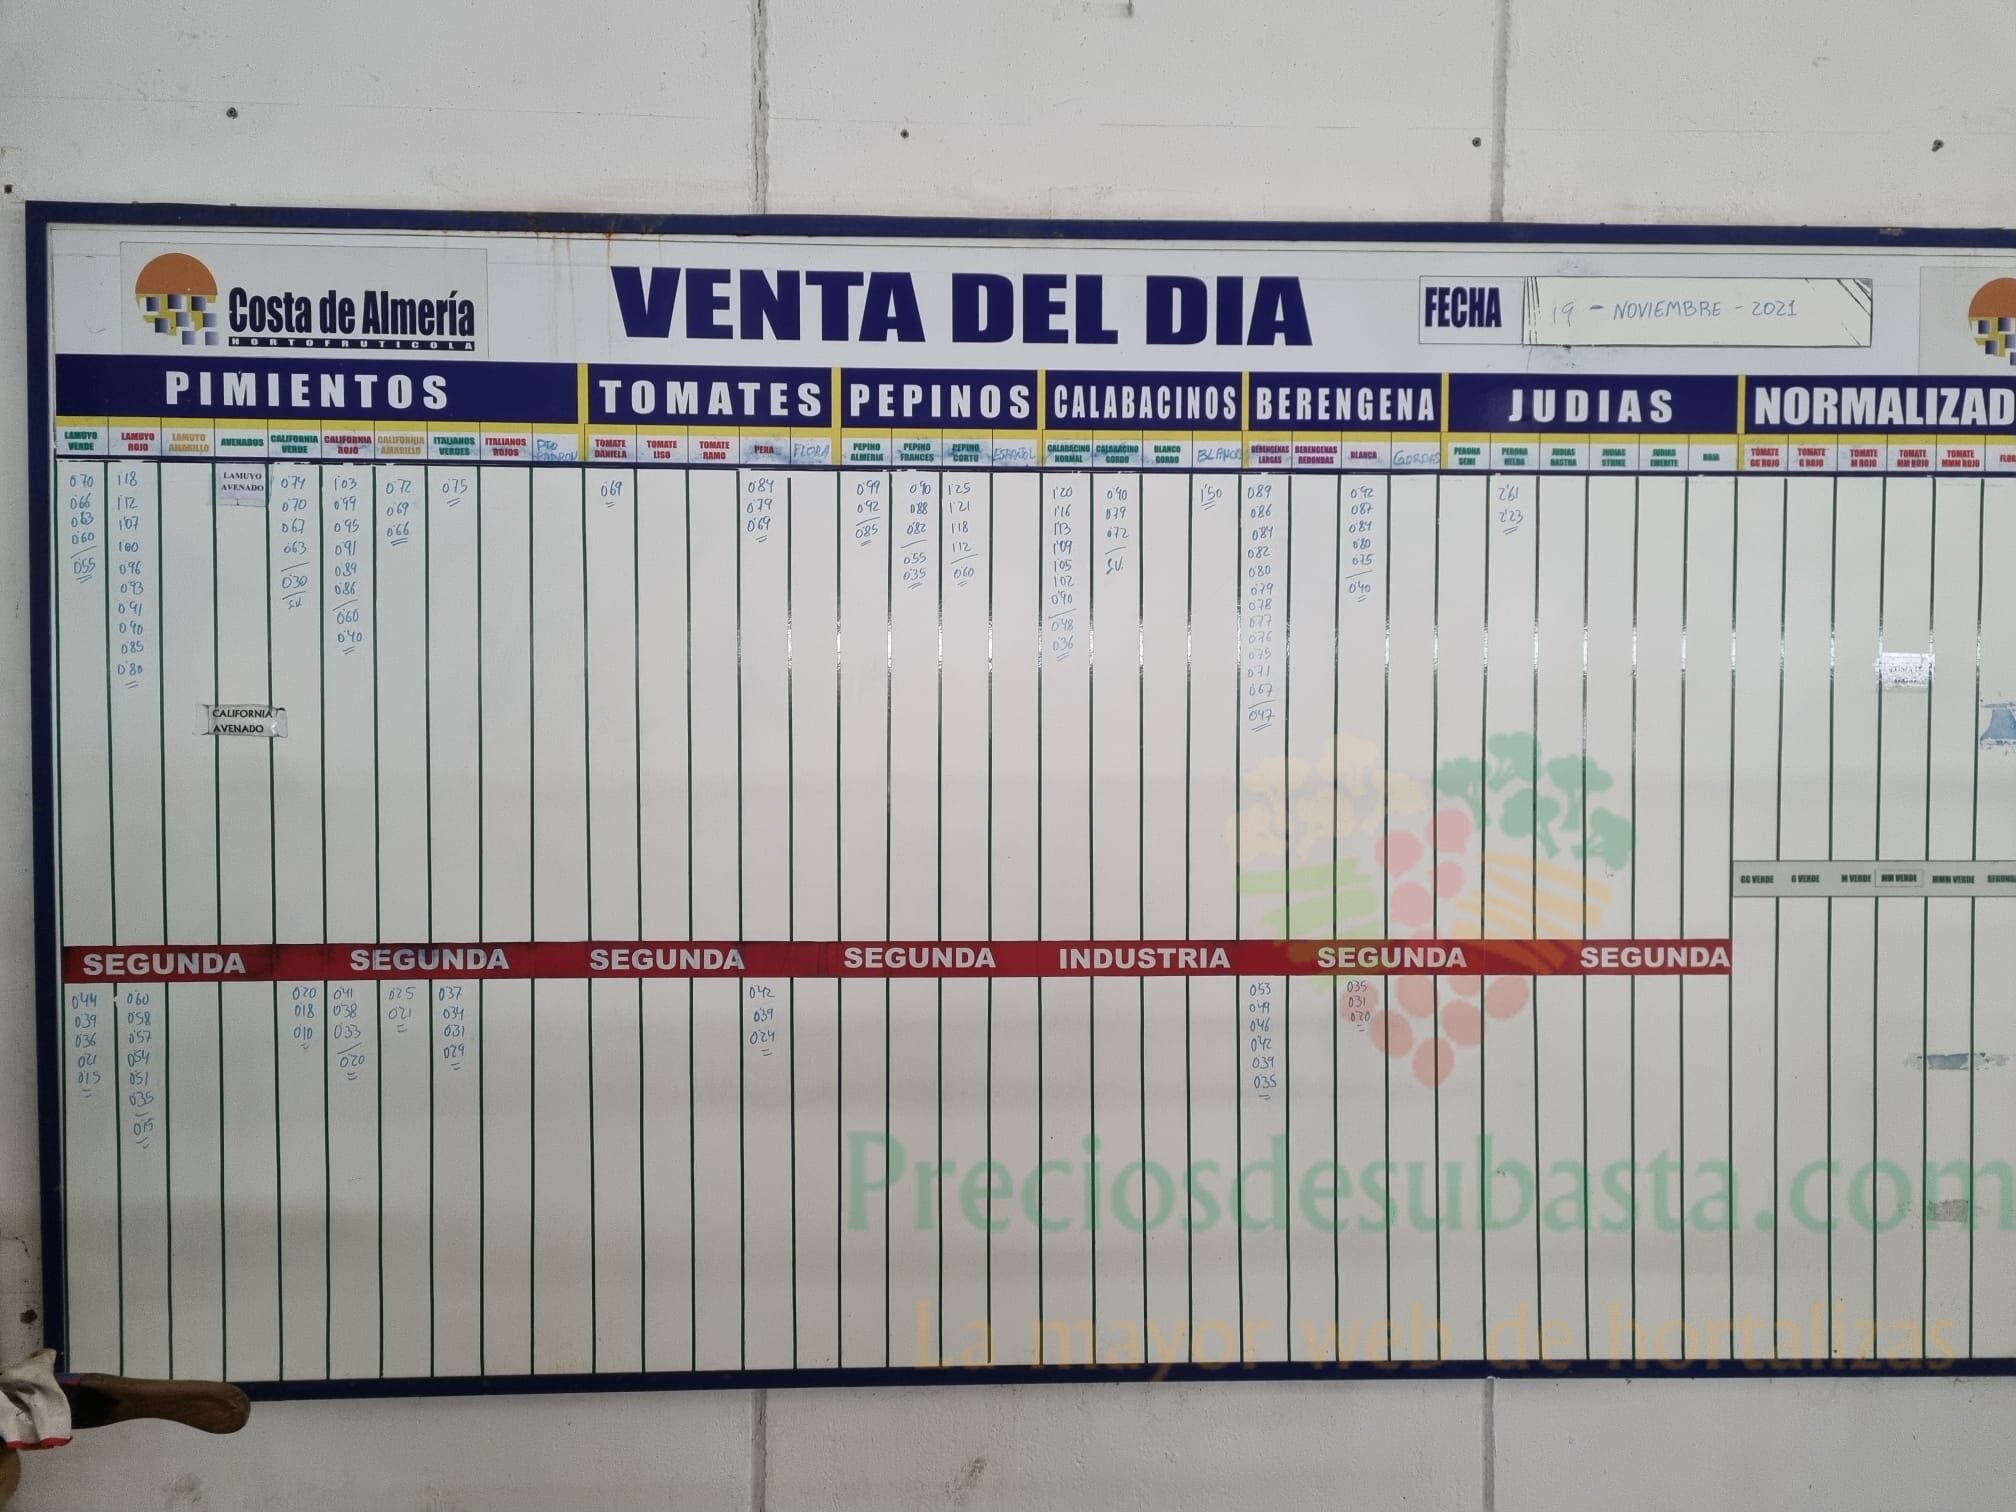 Costa de Almería
HORTOFRUTICOLA
VENTA DEL DIA
FECHA 19 - NOVIEMBRE - 2021
PIMIENTOS TOMATES PEPINOS CALABACINOS BERENGENA JUDIAS NORMALIZAD
LAMUYO VERDE
LAMUYO ROJO
LAMUYO AMARILLO
AVENADOS
CALIFORNIA VERDE
CALIFORNIA ROJO
CALIFORNIA AMARILLO
ITALIANOS VERDES
ITALIANOS ROJOS
PTO PADRON
TOMATE DANIELA
TOMATE LISO
TOMATE RAMO
PERA
FLORA
PEPINO ALMERIA
PEPINO FRANCES
PEPINO CORTO
ESPAÑOL
CALABACINO NORMAL
CALABACINO GORDO
BLANCO GORDO
BLANCO
BERENGENAS LARGAS
BERENGENAS REDONDAS
BLANCA
GORDAS
PERONA SEMI
PERONA HELDA
JUDIAS RASTRA
JUDIAS STRIKE
JUDIAS EMERITE
ROJA
TOMATE GG ROJO
TOMATE G ROJO
TOMATE M ROJO
TOMATE MM ROJO
TOMATE MMM ROJO
FLOR
0'70
0'66
0'63
0'60
0'55
1'18
1'12
1'07
1'00
0'96
0'93
0'91
0'90
0'85
0'80
LAMUYO
AVENADO
CALIFORNIA
AVENADO
0'74
0'70
0'67
0'63
0'30
S.V.
1'03
0'99
0'95
0'91
0'89
0'86
0'60
0'40
0'72
0'69
0'66
0'75
0'69
0'84
0'79
0'69
0'99
0'92
0'85
0'90
0'88
0'82
0'55
0'35
1'25
1'21
1'18
1'12
0'60
1'20
1'16
1'13
1'09
1'05
1'02
0'90
0'48
0'36
0'90
0'79
0'72
S.V.
1'50
0'89
0'86
0'84
0'82
0'80
0'79
0'78
0'77
0'76
0'75
0'71
0'67
0'47
0'92
0'87
0'84
0'80
0'75
0'40
2'61
2'23
GG VERDE G VERDE M VERDE MM VERDE MMM VERDE SEGUNDA
SEGUNDA SEGUNDA SEGUNDA SEGUNDA INDUSTRIA SEGUNDA SEGUNDA
0'44
0'39
0'36
0'21
0'15
0'60
0'58
0'57
0'54
0'51
0'35
0'15
0'20
0'18
0'10
0'41
0'38
0'33
0'20
0'25
0'21
0'37
0'34
0'31
0'29
0'42
0'39
0'24
0'53
0'49
0'46
0'42
0'39
0'35
0'35
0'31
0'20
Preciosdesubasta.com
La mayor web de hortalizas